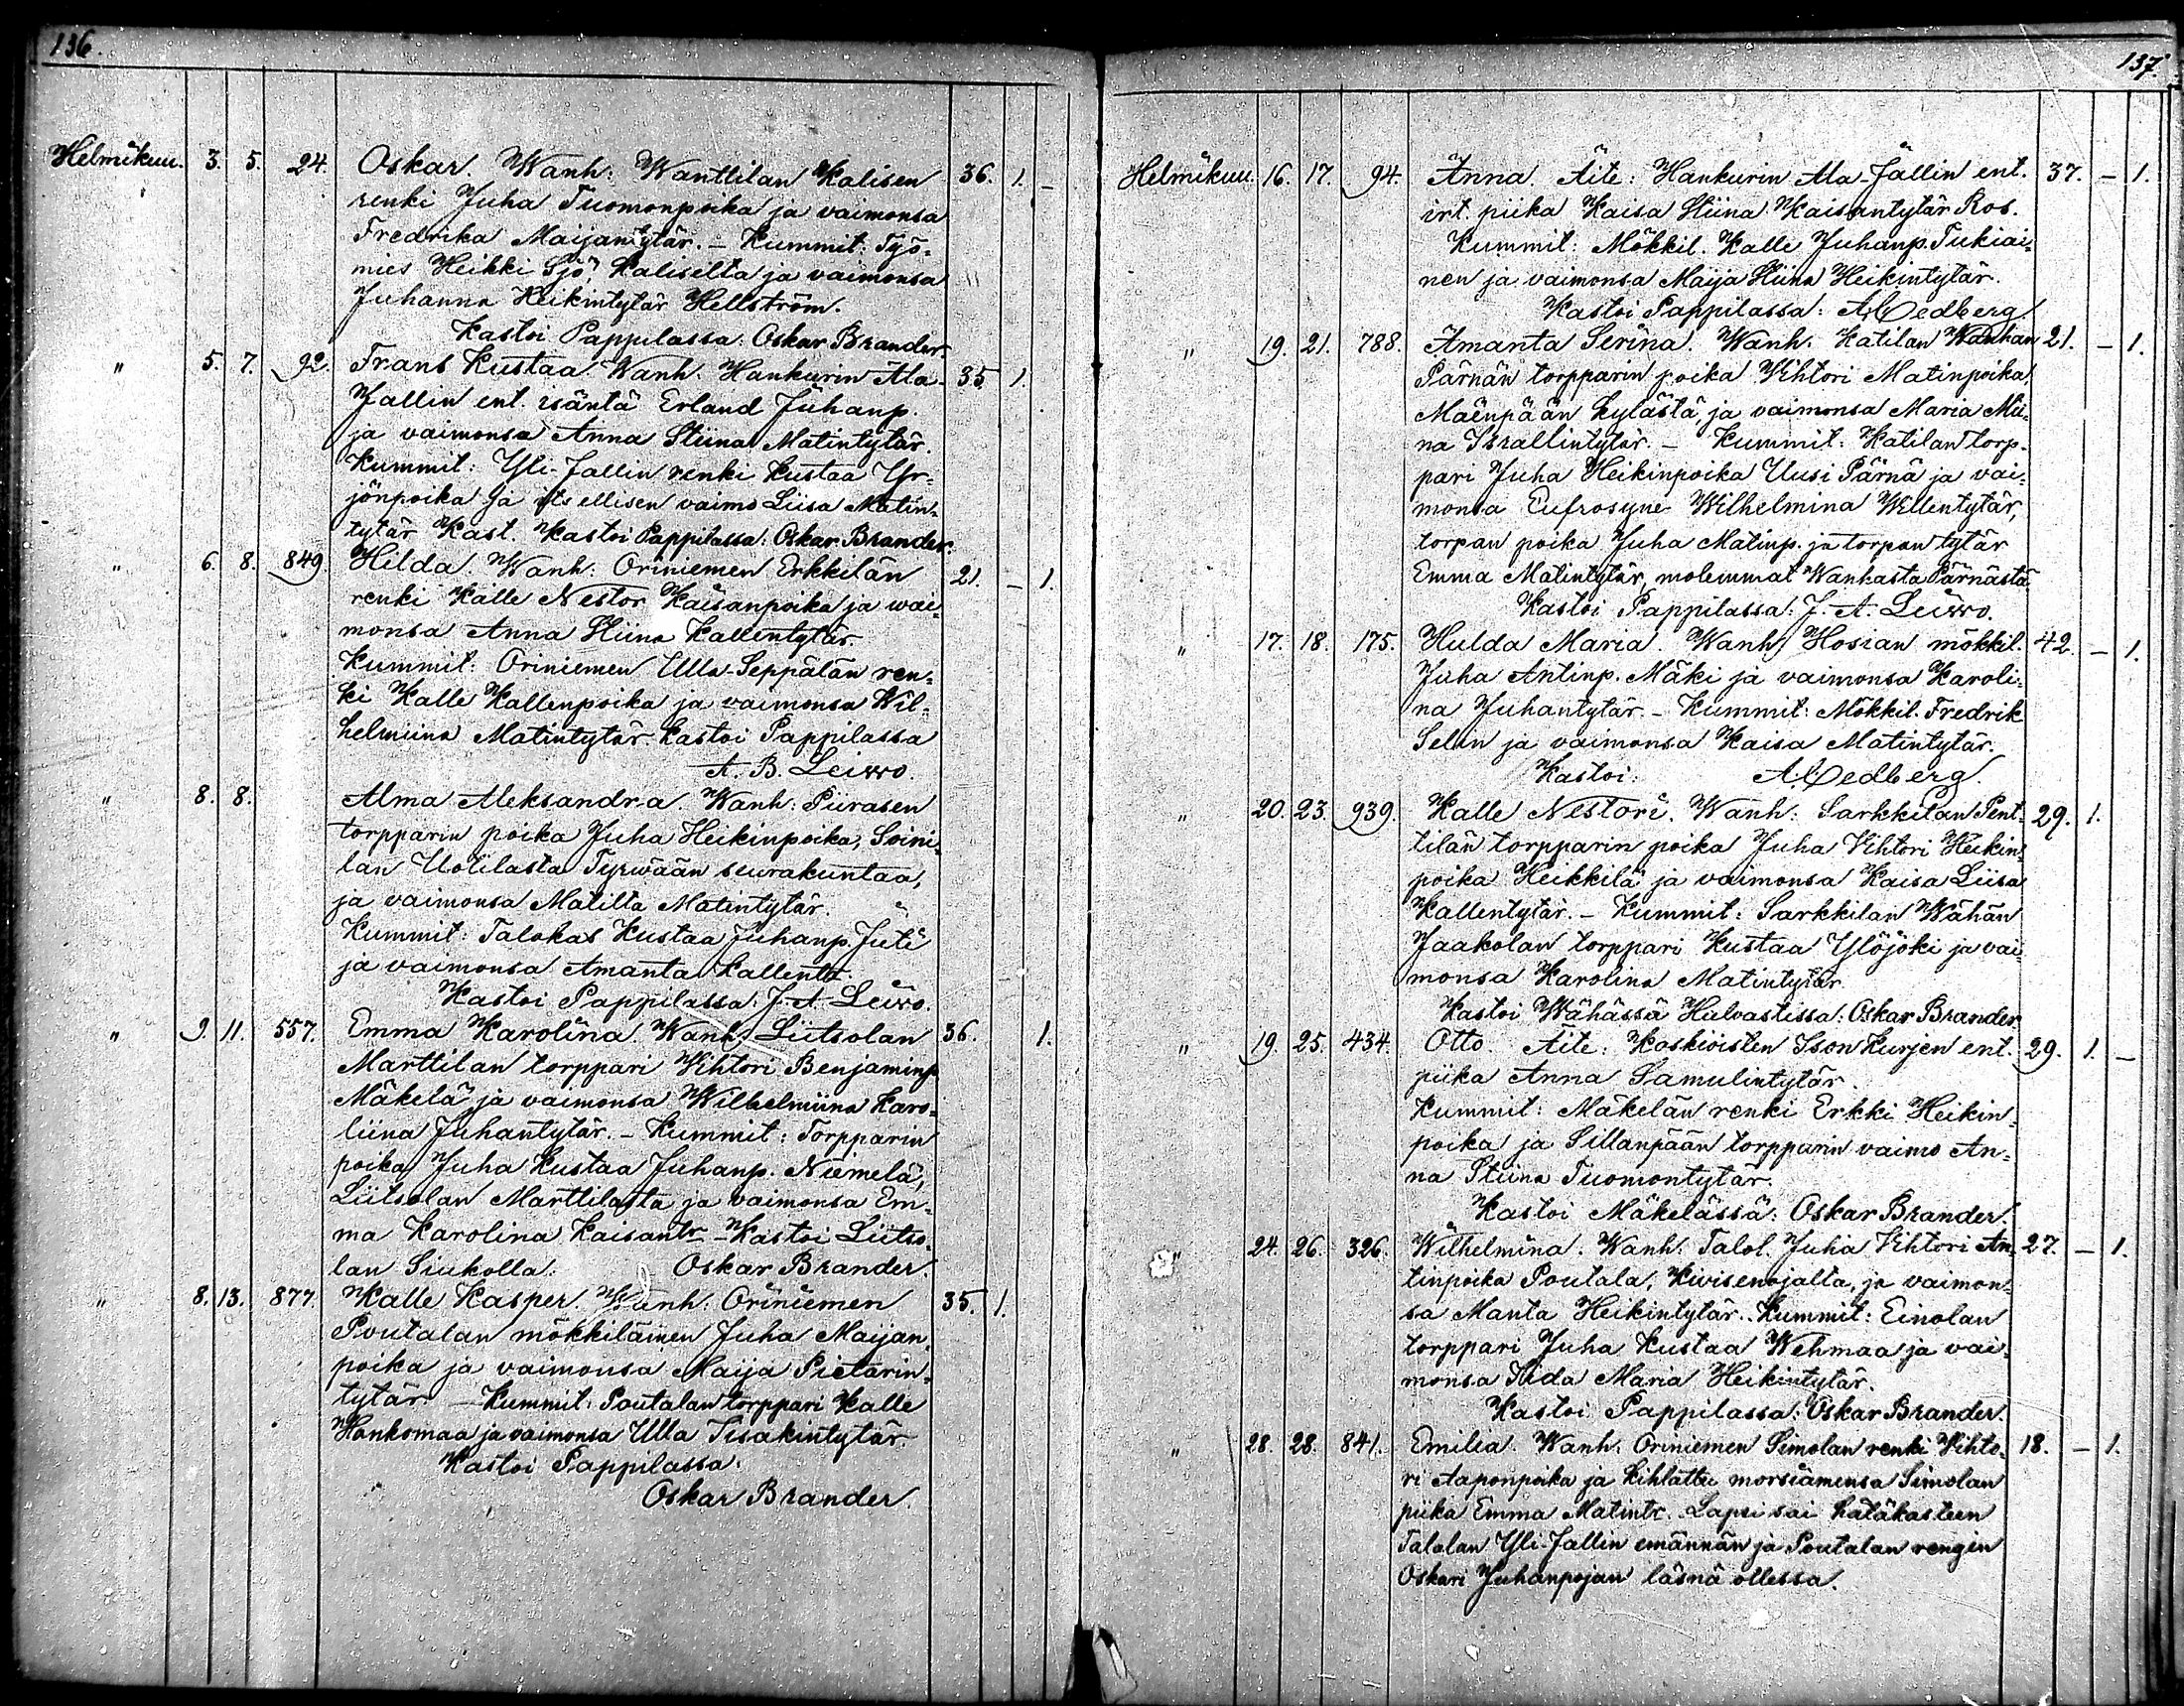 136.
Helmikuu. 3. 5. 24. Oskar. Wanh: Wanttilan Kalisen 36. 1. -
renki Juha Tuomonpoika ja vaimonsa
Fredrika Maijantytär. - Kummit: Työ-
mies Heikki Sjö, Kaliselta ja vaimonsa
Juhanna Heikintytär Hellström.
Kastoi Pappilassa: Oskar Brander.
" 5. 7. 92. Frans Kustaa. Wanh: Hankurin Ala- 35 1.
Jallin ent. isäntä Erland Juhanp.
ja vaimonsa Anna Stiina Matintytär.
Kummit: Yli-Jallin renki Kustaa Yr-
jönpoika ja itsellisen vaimo Liisa Matin-
tytär Kast. Kastoi Pappilassa: Oskar Brander.
" 6. 8. 849. Hilda. Wanh: Oriniemen Erkkilän 21. - 1.
renki Kalle Nestor Kaisanpoika ja wai-
monsa Anna Stiina Kallentytär.
Kummit: Oriniemen Ulla-Seppälän ren-
ki Kalle Kallenpoika ja vaimonsa Wil-
helmiina Matintytär. Kastoi Pappilassa
A. B. Leiwo.
" 8. 8. Alma Aleksandra. Wanh: Piirasen
torpparin poika Juha Heikinpoika, Soini-
lan Uotilasta Tyrwään seurakuntaa,
ja vaimonsa Matilta Matintytär.
Kummit: Talokas Kustaa Juhanp. Juti
ja vaimonsa Amanta Kallentr.
Kastoi Pappilassa: J. A. Leiwo.
" 9. 11. 557. Emma Karolina. Wanh: Liitsolan 36. 1.
Marttilan torppari Vihtori Benjaminp.
Mäkelä ja vaimonsa Wilhelmiina Karo-
liina Juhantytär. - Kummit: Torpparin
poika Juha Kustaa Juhanp. Niemelä,
Liitsolan Marttilasta ja vaimonsa Em-
ma Karolina Kaisantr. - Kastoi Liitso-
lan Siukolla: Oskar Brander.
" 8. 13. 877. Kalle Kasper. Wanh: Oriniemen 35. 1.
Poutalan mökkiläinen Juha Maijan-
poika ja vaimonsa Maija Pietarin-
tytär. - Kummit: Poutalan torppari Kalle
Hankomaa ja vaimonsa Ulla Iisakintytär.
Kastoi Pappilassa:
Oskar Brander.
137.
Helmikuu. 16. 17. 94. Anna. Äite: Hankurin Ala-Jallin ent. 37. - 1.
irt. piika Kaisa Stiina Kaisantytär Ros.
Kummit: Mökkil. Kalle Juhanp. Tukiai-
nen ja vaimonsa Maija Stiina Heikintytär.
Kastoi Pappilassa: A. Cedberg.
" 19. 21. 788. Amanta Serina. Wanh: Katilan Wanhan 21. - 1.
Pärnän torpparin poika Vihtori Matinpoika,
Mäenpään kylästä ja vaimonsa Maria Mii-
na Israllintytär. - Kummit: Katilan torp-
pari Juha Heikinpoika Uusi Pärnä ja vai-
monsa Eufrosyne Wilhelmina Willentytär,
torpan poika Juha Matinp. ja torpan tytär
Emma Matintytär, molemmat Wanhasta Pärnästä.
Kastoi Pappilassa: J. A. Leiwo.
" 17. 18. 175. Hulda Maria. Wanh: Hosian mökkil. 42. - 1.
Juha Antinp. Mäki ja vaimonsa Karoli-
na Juhantytär. - Kummit: Mökkil. Fredrik
Selin ja vaimonsa Kaisa Matintytär.
Kastoi: A. Cedberg.
" 20. 23. 939. Kalle Nestori. Wanh: Sarkkilan Pent- 29. 1.
tilän torpparin poika Juha Vihtori Heikin-
poika Heikkilä ja vaimonsa Kaisa Liisa
Kallentytär. - Kummit: Sarkkilan Wähän
Jaakolan torppari Kustaa Ylöjoki ja vai-
monsa Karolina Matintytär.
Kastoi Wähässä Hulvastissa: Oskar Brander.
" 19. 25. 434. Otto. Äite: Koskioisten Ison Kurjen ent. 29. 1. -
piika Anna Samulintytär.
Kummit: Mäkelän renki Erkki Heikin-
poika ja Sillanpään torpparin vaimo An-
na Stiina Tuomontytär.
Kastoi Mäkelässä: Oskar Brander.
" 24. 26. 326. Wilhelmina. Wanh: Talol. Juha Vihtori An- 27. - 1.
tinpoika Poutala, Kivisenojalta, ja vaimon-
sa Manta Heikintytär. Kummit: Einolan
torppari Juha Kustaa Wehmaa ja vai-
monsa Iida Maria Heikintytär.
Kastoi Pappilassa: Oskar Brander.
" 28. 28. 841. Emilia. Wanh: Oriniemen Simolan renki Vihto- 18. - 1.
ri Aaponpoika ja kihlattu morsiamensa Simolan
piika Emma Matintr. Lapsi sai hätäkasteen
Talalan Yli-Jallin emännän ja Poutalan rengin
Oskari Juhanpojan läsnä ollessa.